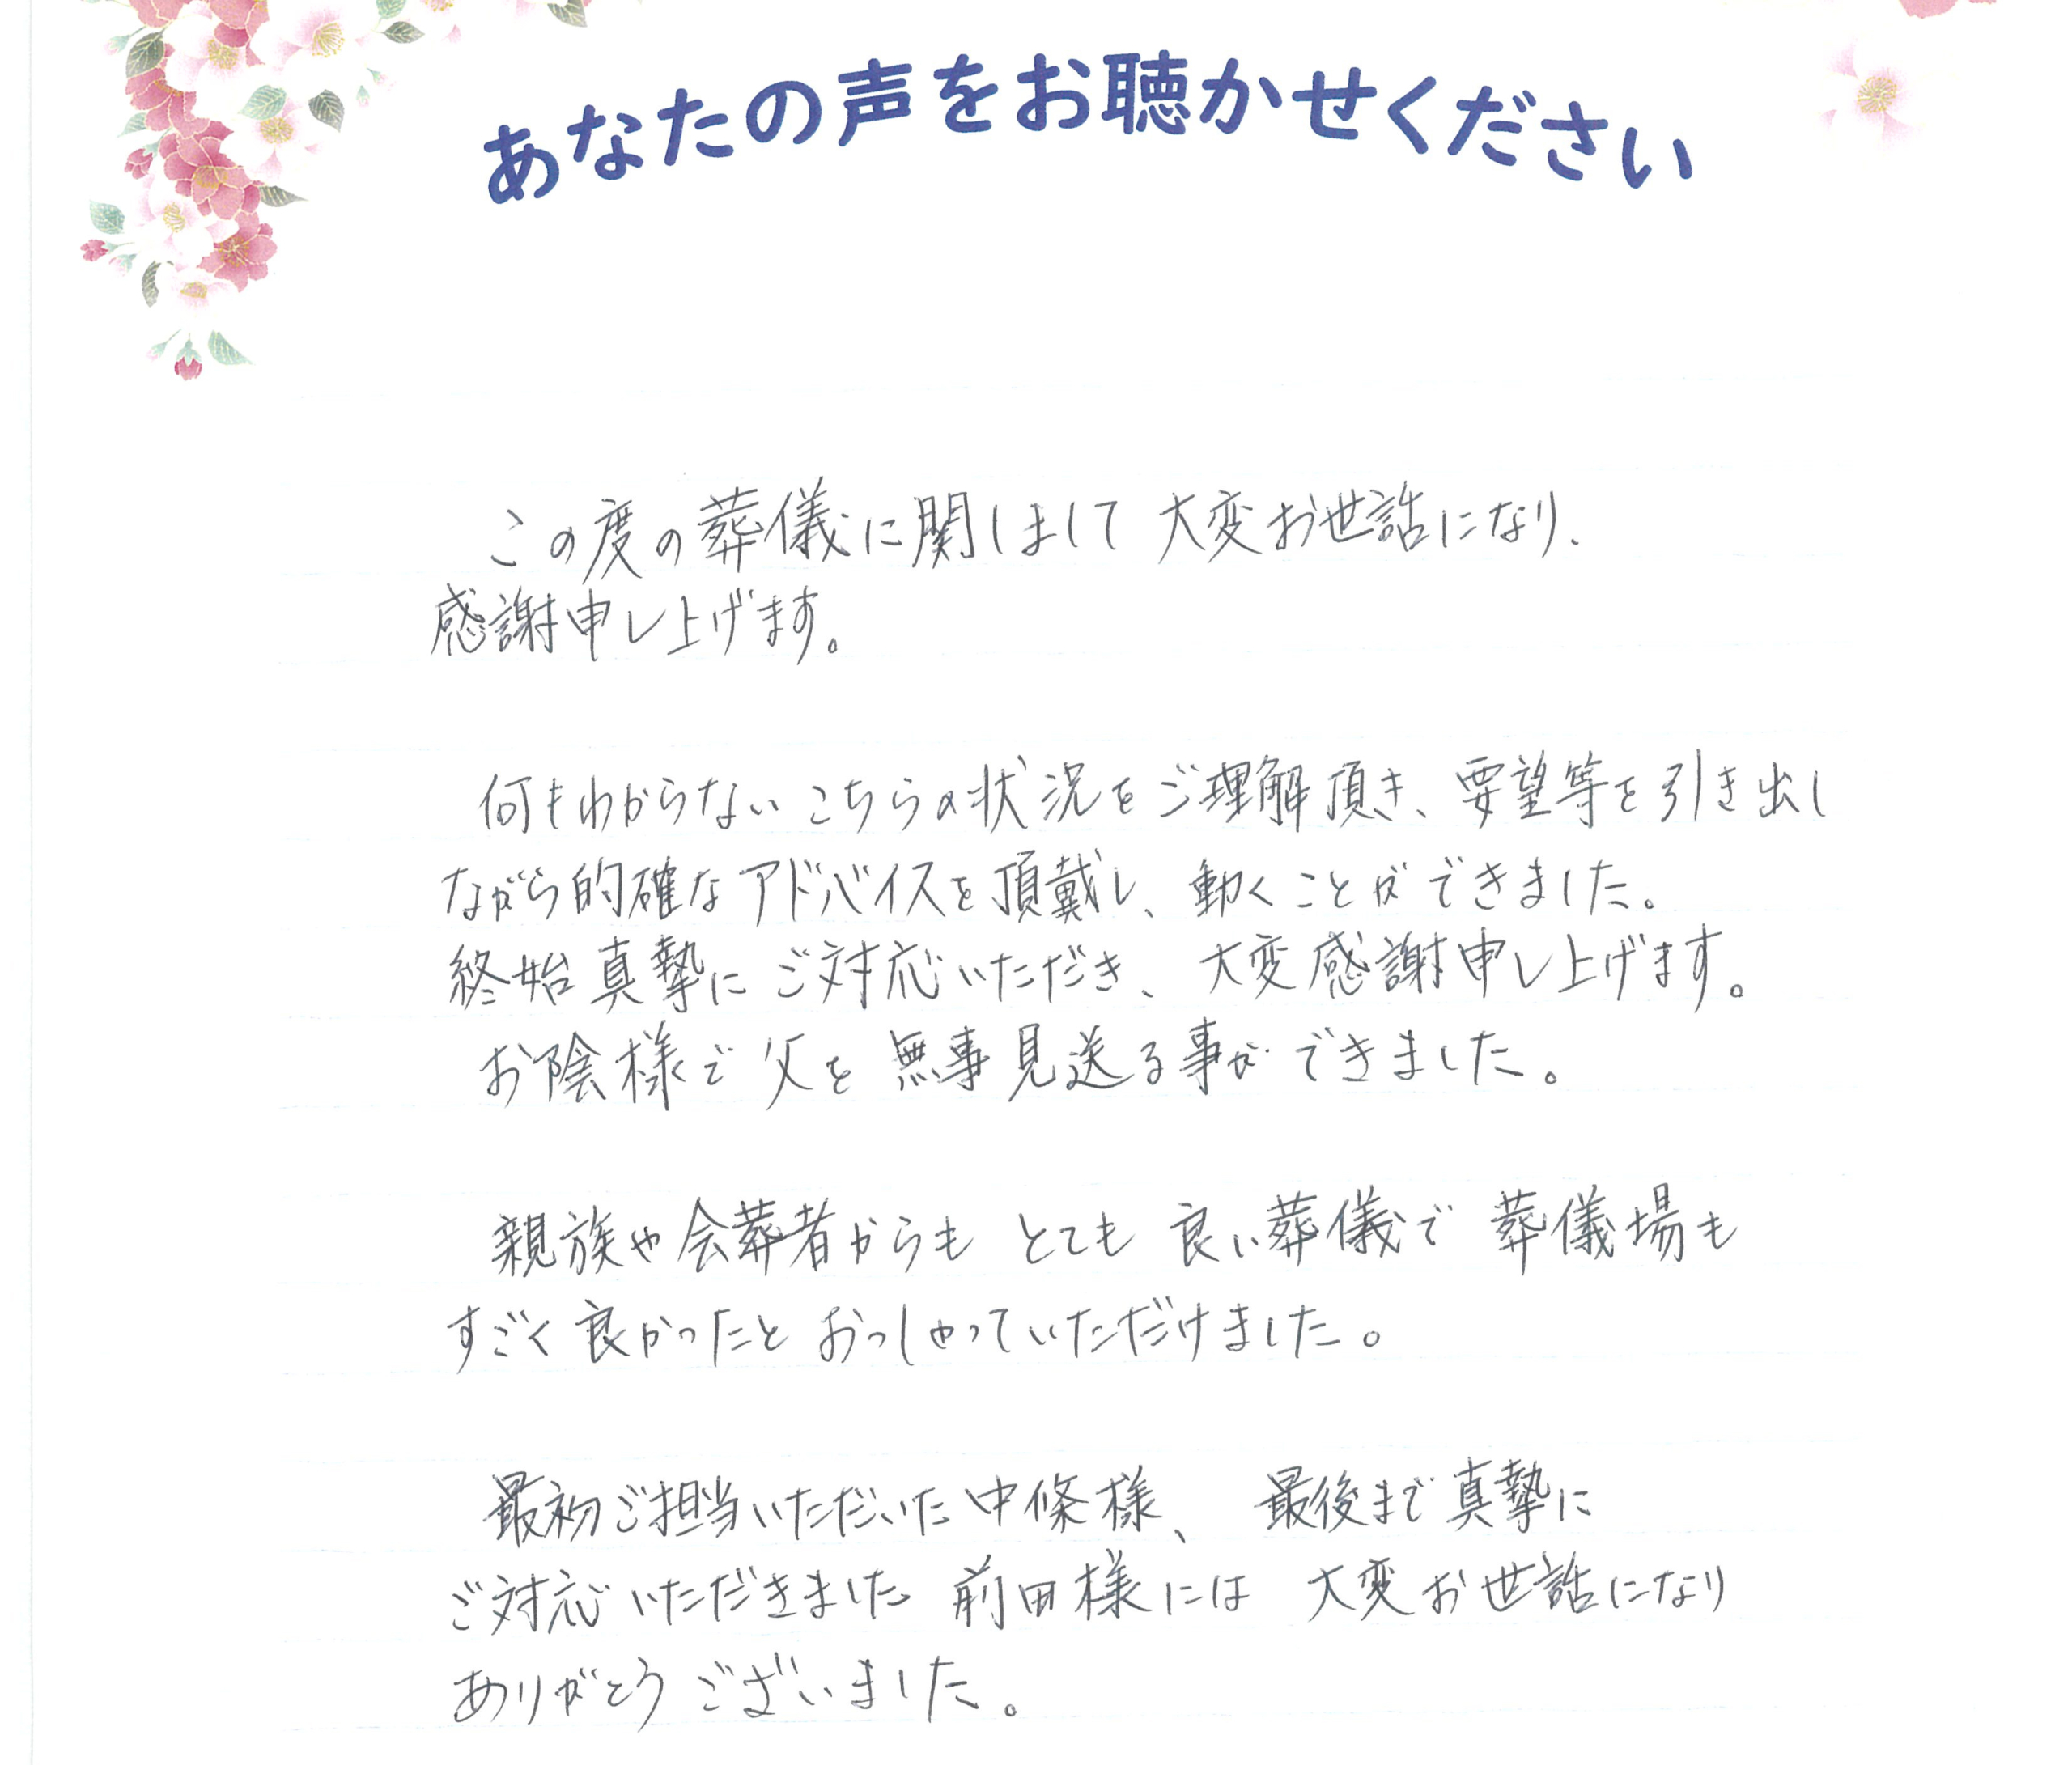 あなたの声をお聴かせください
この度の葬儀に関しまして 大変お世話になり、
感謝申し上げます。
何もわからない こちらの状況をご理解頂き、要望等を引き出し
ながら的確なアドバイスを頂戴し、動くことができました。
終始真摯にご対応いただき、大変感謝申し上げます。
お陰様で父を無事見送る事ができました。
親族や会葬者からも とても 良い葬儀で 葬儀場も
すごく良かったと おっしゃっていただけました。
最初ご担当いただいた中條様、最後まで真摯に
ご対応いただきました 前田様には 大変お世話になり
ありがとうございました。